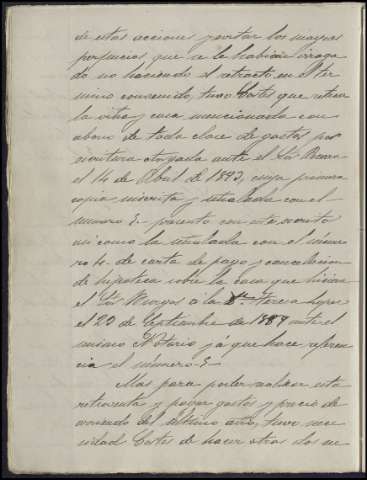 de estas acciones y evitar los mayores
perjuicios que se le habian irroga
do no haciendo el retracto en el ter
mino convenido, tuvo Cortés que retraer
la viña y casa mencionada con
abono de toda clase de gastos por
escritura otorgada ante el Sor
el 14 de Abril de 1892, cuya primera
copia inscrita y señalada con el
numero 3. presento con este escrito
asi como la señalada con el núme
ro 4. de carta de pago y cancelacion
de hipoteca sobre la casa que hicieron
el Sor Burgos a la Da Teresa
el 20 de Septiembre de 1889 ante el
mismo Notario y á que hace referen
cia el número 3.
Mas para poder realizar esta
retroventa y pagar gastos y precio de
arriendo del último año, tuvo nece
sidad Cortés de hacer otras dos